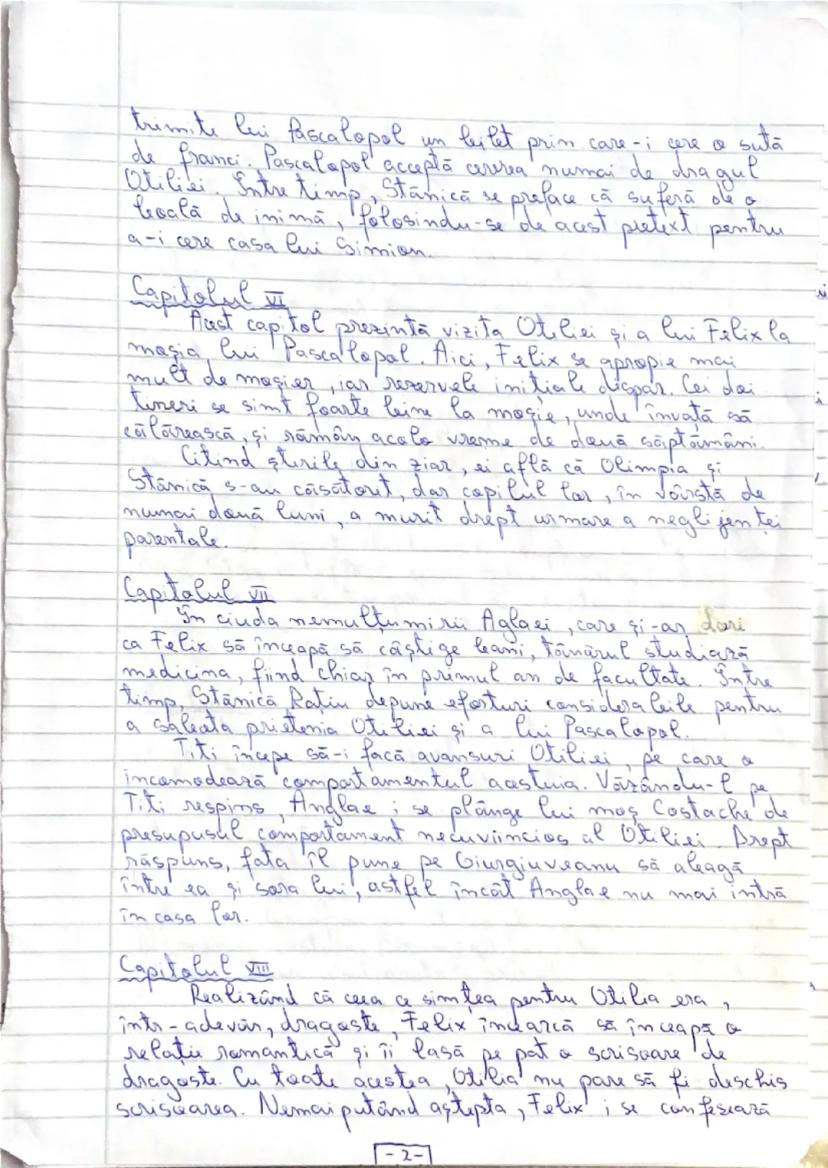 trimite lui Pascalopol un bilet prin care-i cere o sută
de franci. Pascalopol acceptă cererea numai de dragul
Otiliei. Între timp, Stănică se preface că suferă de o
boală de inimă, folosindu-se de acest pretext pentru
a-i cere casa lui Simion.
Capitolul VI
Acest capitol prezintă vizita Otiliei și a lui Felix la
moșia lui Pascalopol. Aici, Felix se apropie mai
mult de moșier, iar rezervele inițiale dispar. Cei doi
tineri se simt foarte bine la moșie, unde învață să
călărească, și rămân acolo vreme de două săptămâni.
Citind știrile din ziar, ei află că Olimpia și
Stănică s-au căsătorit, dar copilul lor, în vârstă de
numai două luni, a murit drept urmare a neglijenței
parentale.
Capitolul VII
În ciuda nemulțumirii Aglaei, care și-ar dori
ca Felix să înceapă să câștige bani, tânărul studiază
medicina, fiind chiar în primul an de facultate. Între
timp, Stănică Rațiu depune eforturi considerabile pentru
a saleata prietenia Otiliei și a lui Pascalopol.
Titi începe să-i facă avansuri Otiliei, pe care o
incomodează comportamentul acestuia. Văzându-l pe
Titi respins, Anglae i se plânge lui moș Costache de
presupusul comportament necuviincios al Otiliei. Drept
răspuns, fata îl pune pe Giurgiuveanu să aleagă
între ea și sora lui, astfel încât Anglae nu mai intră
în casa lor.
Capitolul VIII
Realizând că ceea ce simțea pentru Otilia era,
într-adevăr, dragoste, Felix încearcă să înceapă o
relație romantică și îi lasă pe pat o scrisoare de
dragoste. Cu toate acestea, Otilia nu pare să fi deschis
scrisoarea. Nemaiputând aștepta, Felix i se confesează
-2-